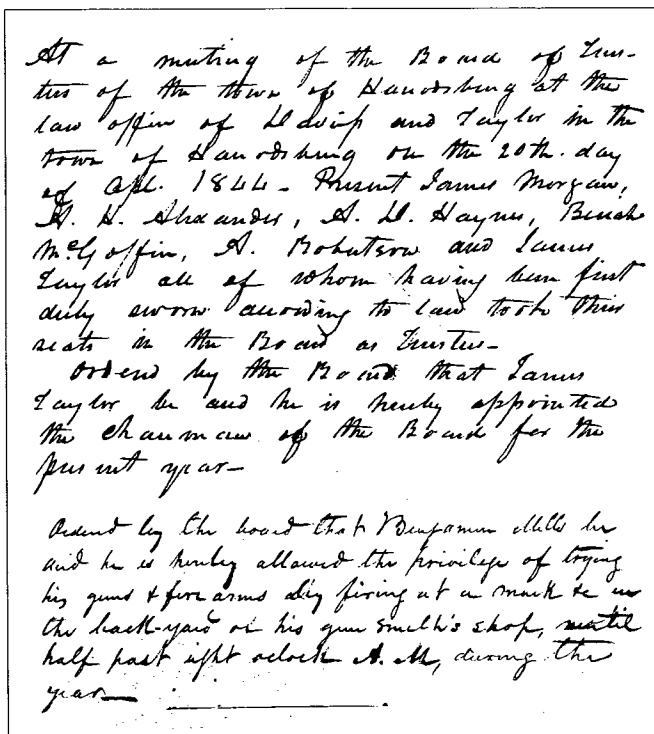 At a meeting of the Board of Trus-
tees of the town of Harrodsburg at the
law office of Daviess and Taylor in the
town of Harrodsburg on the 20th. day
of Apl. 1844 - Present James Morgan,
A. H. Alexander, A. D. Haynes, Beriah
McGoffin, A. Robertson and James
Taylor all of whom having been first
duly sworn according to law took their
seats in the Board as Trustees-
Ordered by the Board that James
Taylor be and he is hereby appointed
the Chairman of the Board for the
present year-
Ordered by the board that Benjamin Mills be
and he is hereby allowed the privilege of trying
his guns & fire arms by firing at a mark &c in
the back-yard of his gun smith's shop, until
half past eight oclock A.M, during the
year